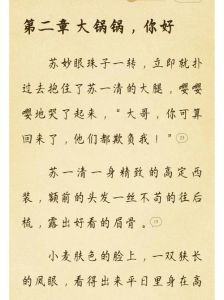 第二章大锅锅，你好
苏妙眼珠子一转，立即就扑
过去抱住了苏一清的大腿，嘤嘤
嘤地哭了起来，“大哥，你可算
回来了，他们都欺负我！”
苏一清一身精致的高定西
装，额前的头发一丝不苟的往后
梳，露出好看的眉骨。
小麦肤色的脸上，一双狭长
的凤眼，看得出来平日里身在高